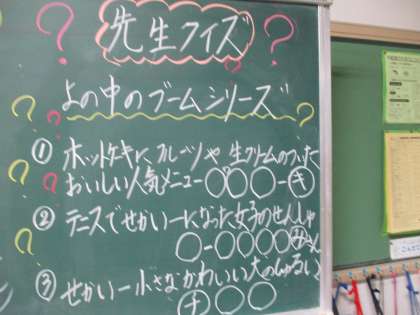 先生クイズ
よの中のブームシリーズ
① ホットケーキに、フルーツや生クリームのついた
おいしい人気メニュー〇〇〇ー㋖
② テニスでせかい一になった女子のせんしゅ
〇ー〇〇〇〇みさん
③ せかい一小さなかわいい犬のしゅるい
㋠〇〇〇